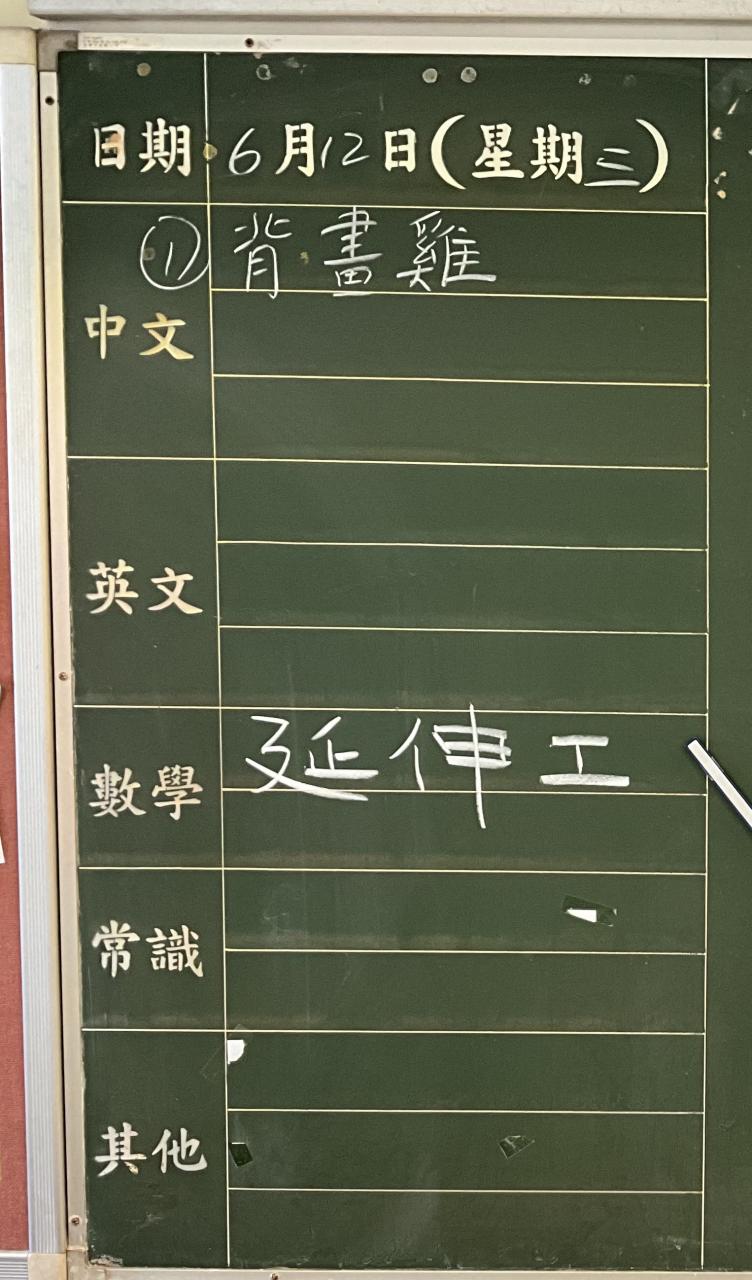 日期 6月12日(星期三)
① 背畫雞
中文
英文
數學 延伸工
常識
其他